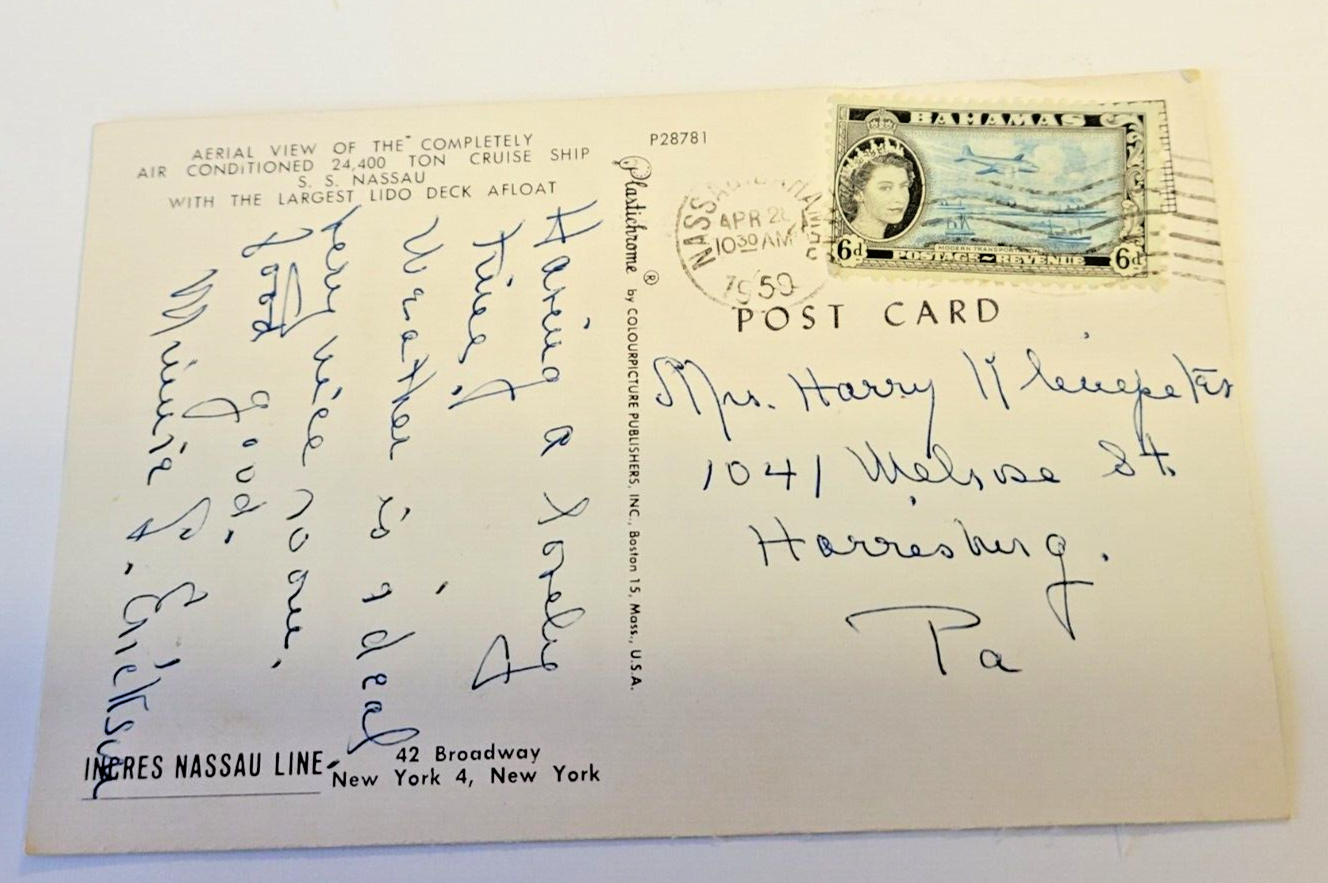 AERIAL VIEW OF THE COMPLETELY
AIR CONDITIONED 24,400 TON CRUISE SHIP
S. S. NASSAU
WITH THE LARGEST LIDO DECK AFLOAT
Having a lovely
time.
Weather is ideal
very nice room.
food good.
Minnie
INCRES NASSAU LINE
42 Broadway
New York 4, New York
Plastichrome ® by COLOURPICTURE PUBLISHERS, INC., Boston 15, Mass., U.S.A.
P28781
NASSAU BAHAMAS
APR 2
10 30 AM
1959
BAHAMAS
6d
POSTAGE ~ REVENUE
6d
POST CARD
Mrs. Harry
1041 Melrose St.
Harresburg.
Pa